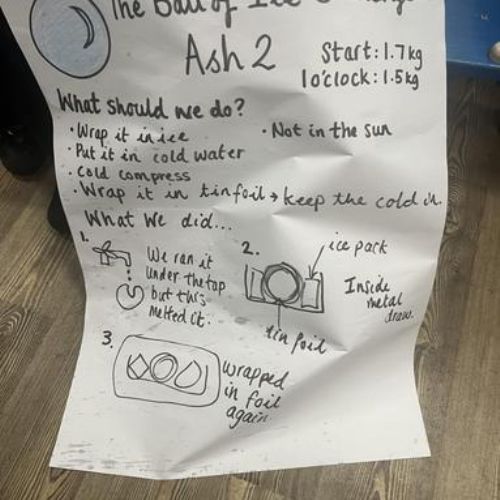 The Ball of Ice
Ash 2
Start: 1.7kg
1o'clock: 1.5kg
What should we do?
• Wrap it in ice
• Not in the sun
• Put it in cold water
• Cold compress
• Wrap it in tinfoil → keep the cold in.
What we did...
1.
We ran it
under the tap
but this
melted it.
2.
ice pack
Inside
metal
draw.
tin foil
3.
wrapped
in foil
again